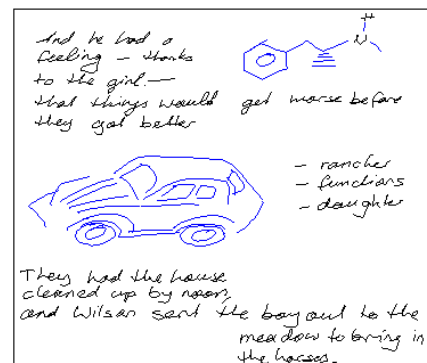 And he had a
feeling – thanks
to the girl –
that things would get worse before
they got better
H
N
– rancher
– functions
– daughter
They had the house
cleaned up by noon,
and Wilson sent the boy out to the
meadow to bring in
the horses.